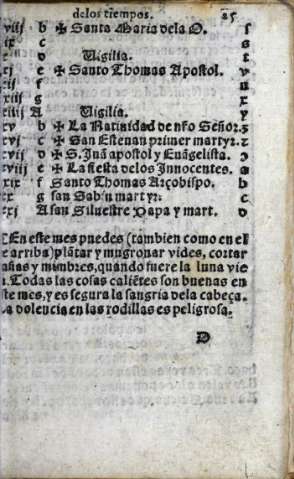 delos tiempos. 25
viij b ✠ Santa Maria dela O. s
ix c t
d Uigilia. v
xj e ✠ Santo Thomas Apostol.
xij f
xiij g x
xiiij A Uigilia. y
xv b ✠ La Natinidad de nřo Señor. z
xvj c ✠ San Esteuan primer martyr.
xvij d ✠ S. Juã apostol y Euãgelista.
xviij e ✠ La fiesta delos Innocentes. a
xix f Santo Thomas Arçobispo. b
xx g san Sabin martyr: c
xxj A san Siluestre Papa y mart. d
En este mes puedes (tambien como en el
e arriba) plãtar y mugronar vides, cortar
añas y mimbres, quando fuere la luna vie
a. Todas las cosas caliẽtes son buenas en
te mes, y es segura la sangria dela cabeça.
a dolencia en las rodillas es peligrosa.
D